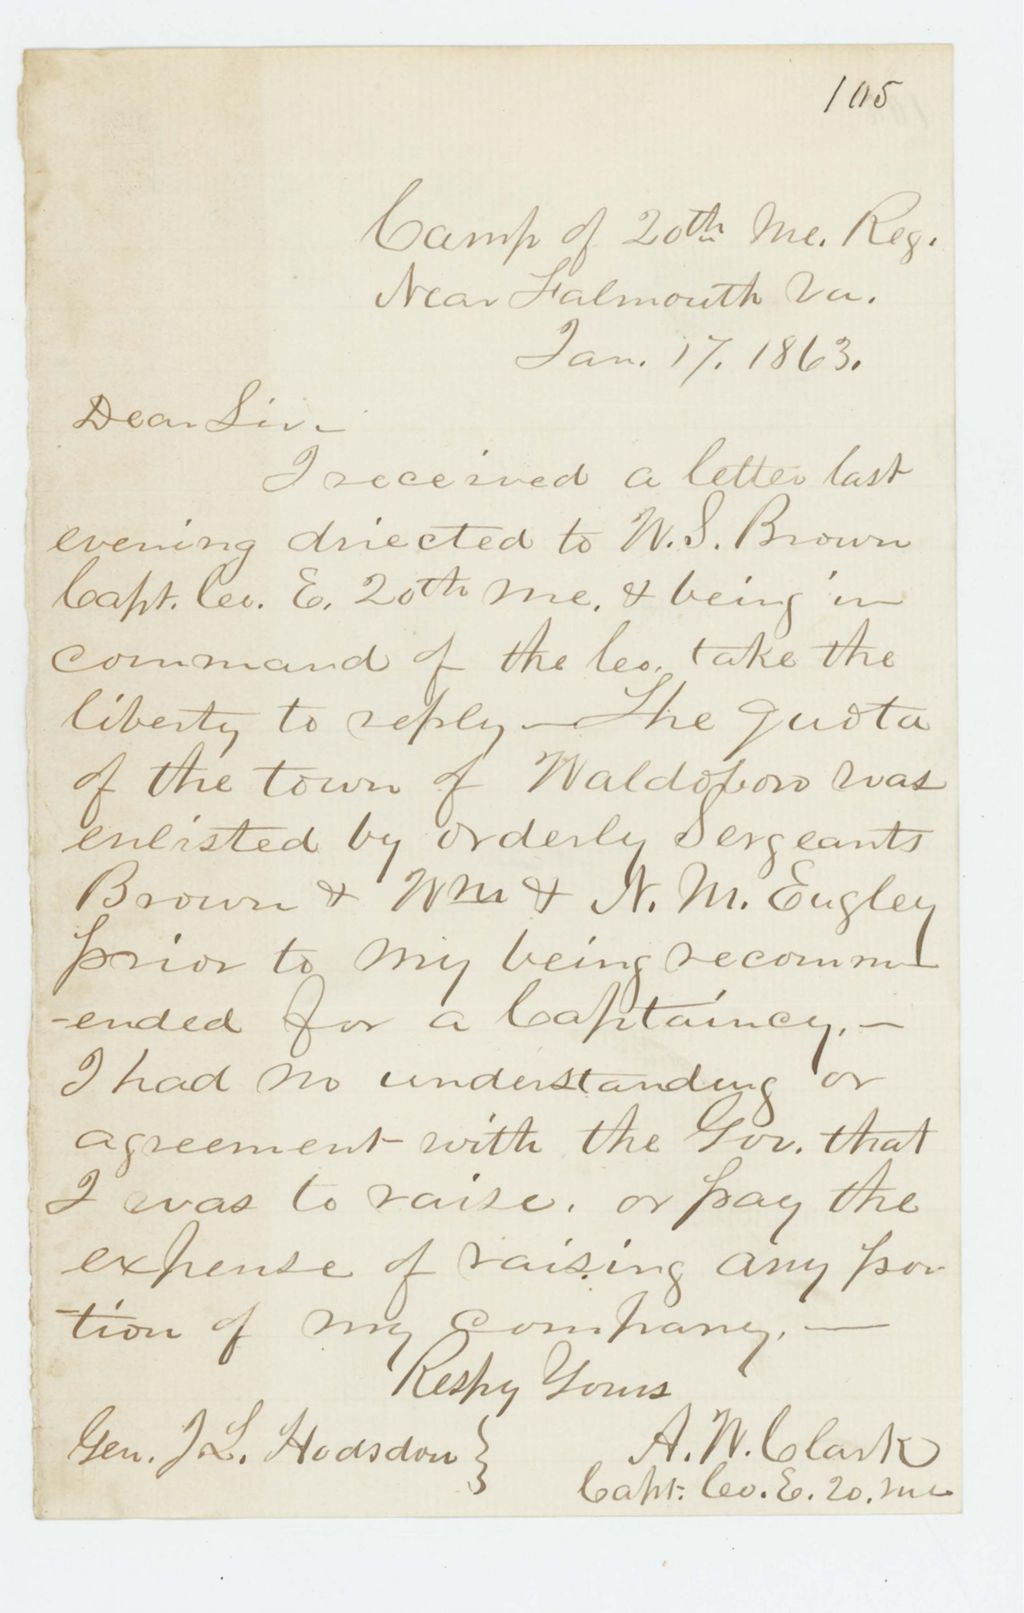 105
Camp of 20th Me. Reg.
Near Falmouth Va.
Jan. 17. 1863.
Dear Sir –
I received a letter last
evening directed to W. S. Brown
Capt. Co. E. 20th Me. & being in
command of the Co. take the
liberty to reply – The quota
of the town of Waldoboro was
enlisted by Orderly Sergeants
Brown & Wm & N. M. Eugley
prior to my being recomm
-ended for a Captaincy. –
I had no understanding or
agreement with the Gov. that
I was to raise. or pay the
expense of raising any por
-tion of my company. –
Respy Yours
Gen. J. L. Hodsdon }
A. W. Clark
Capt. Co. E. 20. Me